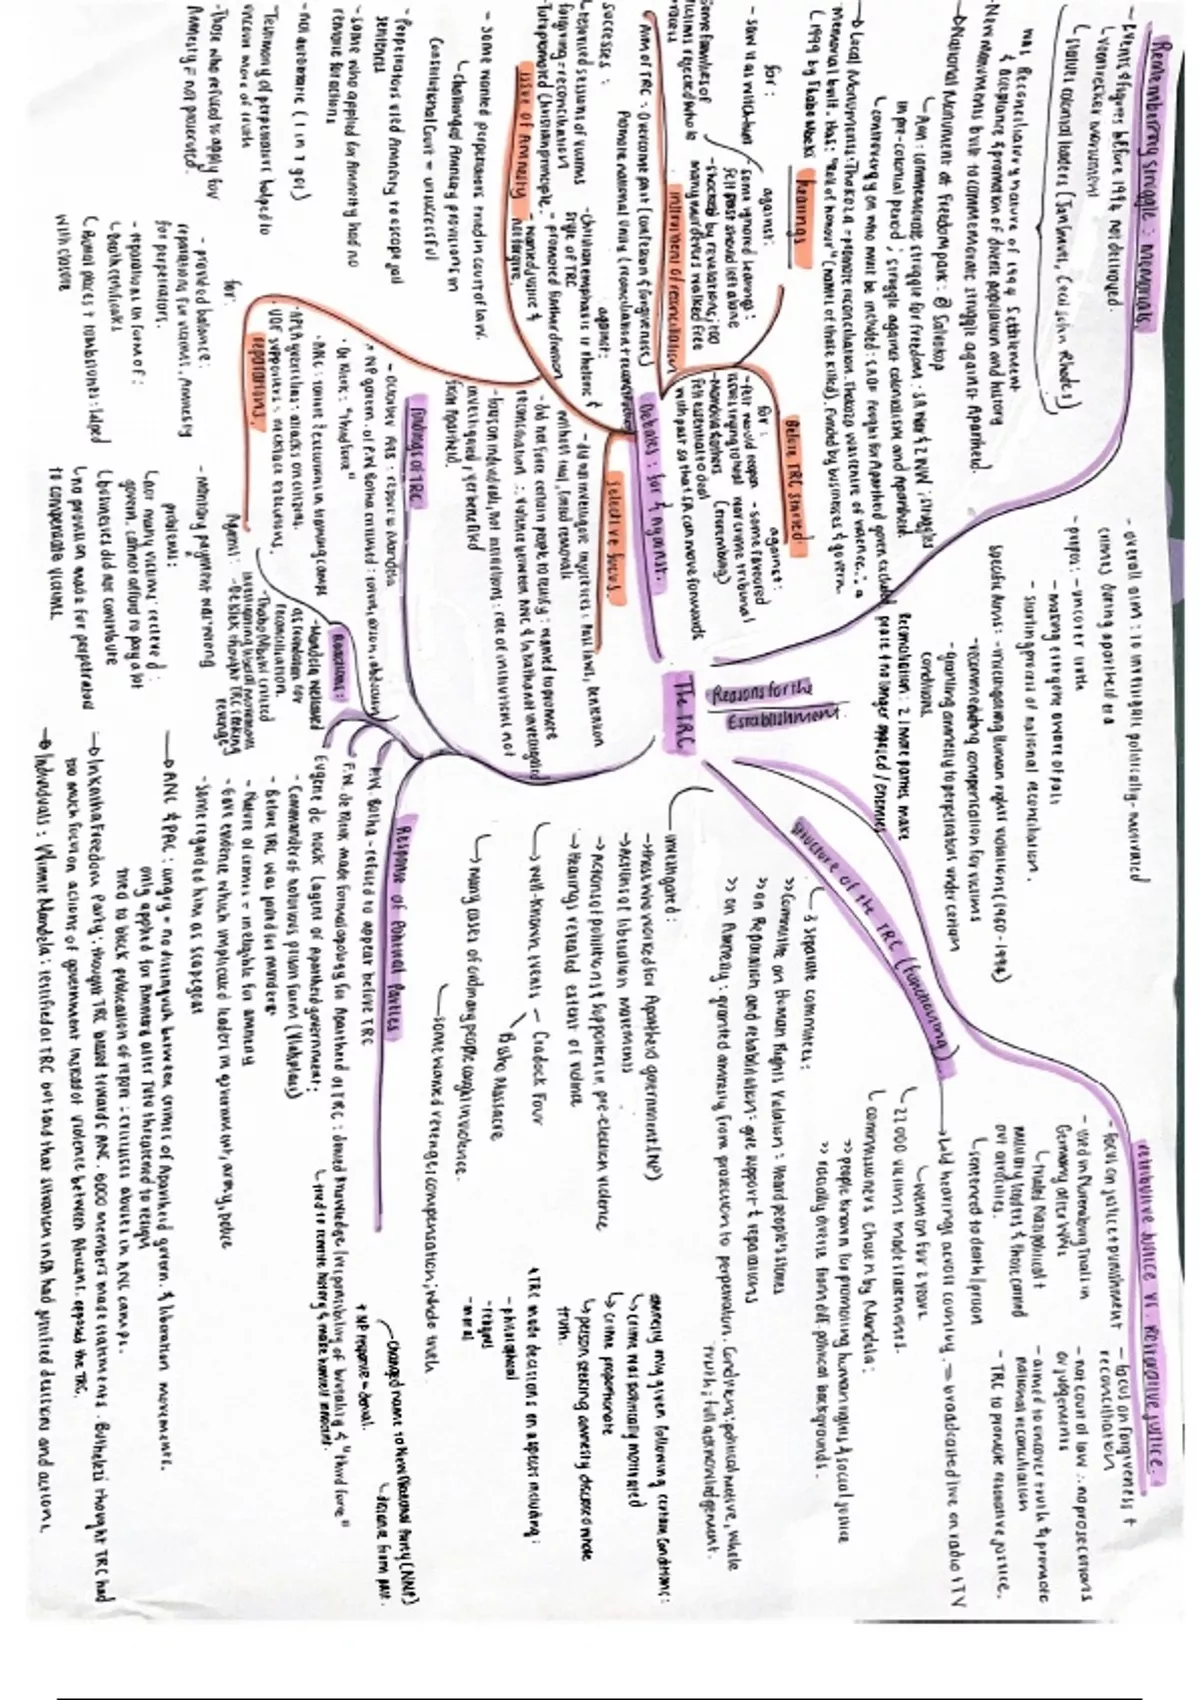 The TRC
Reasons for the
Establishment
- overall aim : to investigate politically-motivated
crimes during apartheid
- purpose : - uncover truth
- making everyone aware of past
- starting process of national reconciliation.
specific aims : - investigating human rights violations (1960 - 1994)
- recommending compensation for victims
- granting amnesty to perpetrators under certain
conditions.
Reconciliation : 2 / more parties make
peace & no longer opposed / enemies
Retributive Justice vs. Restorative Justice.
- focus on justice & punishment
- used in Nuremburg Trials in
Germany after WW2
↳ trialed Nazi political &
military leaders & those carried
out atrocities.
↳ sentenced to death / prison
- focus on forgiveness &
reconciliation
- not court of law ∴ no prosecutions
or judgements
- aimed to uncover truth & promote
national reconciliation
- TRC to promote restorative justice.
Structure of the TRC (functioning)
→ held hearings across country → broadcasted live on radio & TV
↳ went on for 2 years
↳ 22 000 victims made statements.
↳ commissioners chosen by Mandela :
>> people known for promoting human rights & social justice
>> racially diverse from diff. political backgrounds.
↳ 3 separate committees :
>> Committee on Human Rights Violation : heard people's stories
>> on Reparation and rehabilitation : give support & reparations
>> on Amnesty : granted amnesty from prosecution to perpetrators. Conditions : political motive, whole
truth ; full acknowledgement.
investigated :
→ those who worked for Apartheid government (NP)
→ actions of liberation movements
→ actions of politicians & supporters in pre-election violence
→ Hearings revealed extent of violence
→ well-known events - Cradock Four
Bisho Massacre
→ many cases of ordinary people caught in violence.
→ some wanted revenge ; compensation ; whole truth.
amnesty only given following certain conditions :
↳ crime was politically motivated
↳ crime proportionate
↳ person seeking amnesty disclosed whole
truth.
* TRC made decisions on aspects including :
- philosophical
- religious
- moral
Remembering struggle : memorials.
- Events & figures before 1994 not destroyed.
↳ Voortrekker monument
↳ statues colonial leaders (Jan Smuts, Cecil John Rhodes)
was reconciliatory nature of 1994 Settlement
& acceptance & promotion of diverse population and history
- New monuments built to commemorate struggle against Apartheid.
→ National Monument at Freedom park : @ Salvokop
↳ Aim : commemorate struggle for freedom : SA War & 2 WW ; struggles
in pre-colonial period ; struggle against colonialism and Apartheid.
↳ controversy on who must be included : SADF fought for Apartheid govern. excluded
→ Local Monuments : Thokoza → promote reconciliation. Thokoza was centre of violence ∴ a
memorial built. Has : "Roll of honour" (names of those killed). Funded by businesses & govern.
↳ 1999 by Thabo Mbeki
Debates : for & against.
Before TRC started.
for :
- felt would reopen
- Mandela & others
felt essential to deal
with past so that SA can move forwards
against :
- some favoured
Nuremburg
hearings
for :
- saw it as witch-hunt
against :
- some ignored hearings :
felt past should left alone
- shocked by revelations ; too
many murderers walked free
Some families of
victims rejected
instrument of reconciliation
Aim of TRC : Overcome past (confession & forgiveness)
Promote national unity (reconciliation)
successes :
↳ televised sessions of victims
forgiving = reconciliation
- Tutu promoted Christian principle.
against :
- Christian emphasis in rhetoric &
style of TRC
- promoted further division
- wanted justice &
not forgive.
selective focus.
- did not investigate injustices : Pass laws, detention
without trial, forced removals
- did not force certain people to testify : wanted to promote
reconciliation ∴ violence between ANC & Inkatha not investigated
- focus on individuals, not institutions : role of institutions not
investigated ; yet benefited
from Apartheid.
issue of Amnesty
- some wanted perpetrators tried in court of law.
↳ challenged Amnesty provisions in
Constitutional Court = unsuccessful
- Perpetrators used Amnesty to escape jail
sentences
- some who applied for Amnesty had no
remorse for actions
- not automatic (1 in 7 got)
- Testimony of perpetrators helped to
uncover more of truth
- Those who refused to apply for
Amnesty = not prosecuted.
reparations.
for :
- provided balance :
reparations for victims, Amnesty
for perpetrators.
- reparations in form of :
↳ Death certificates
↳ Burial places & tombstones : helped
with closure
Against :
- monetary payment was wrong
problems :
↳ too many victims received :
govern. cannot afford to pay a lot
↳ businesses did not contribute
↳ no provision made for perpetrators
to compensate victims.
findings of TRC
→ October 1998 : report to Mandela
* NP govern. of P.W Botha criticised
* De Klerk : "third force"
* ANC : torture & executions in training camps
* APLA guerillas : attacks on civilians.
* UDF supporters : necklace executions.
Reactions :
- Mandela welcomed
as foundation for
reconciliation.
- Thabo Mbeki critised
- De Klerk thought TRC seeking
revenge
Response of Political Parties
P.W. Botha - refused to appear before TRC
F.W. de Klerk made formal apology for Apartheid at TRC : denied knowledge / responsibility of brutality & "third force"
↳ tried to rewrite history & make himself innocent.
* NP response = denial.
↳ Changed name to New National Party (NNP)
↳ distance from past.
Eugene de Kock (agent of Apartheid government :
- Commander of notorious prison farm (Vlakplaas)
- Before TRC was jailed for murders
- Nature of crimes = ineligible for amnesty
- Gave evidence which implicated leaders in government, army, police
- Some regarded him as scapegoat
→ ANC & PAC : angry = no distinguish between crimes of Apartheid govern. & liberation movements.
only applied for Amnesty after Tutu threatened to resign
tried to block publication of report : criticises abuses in ANC camps.
→ Inkatha Freedom Party : thought TRC biased towards ANC. 6000 members made statements. Buthelezi thought TRC had
too much focus on actions of government instead of violence between Africans. opposed the TRC.
→ Individuals : Winnie Mandela : testified at TRC but said that situation in SA had justified decisions and actions.